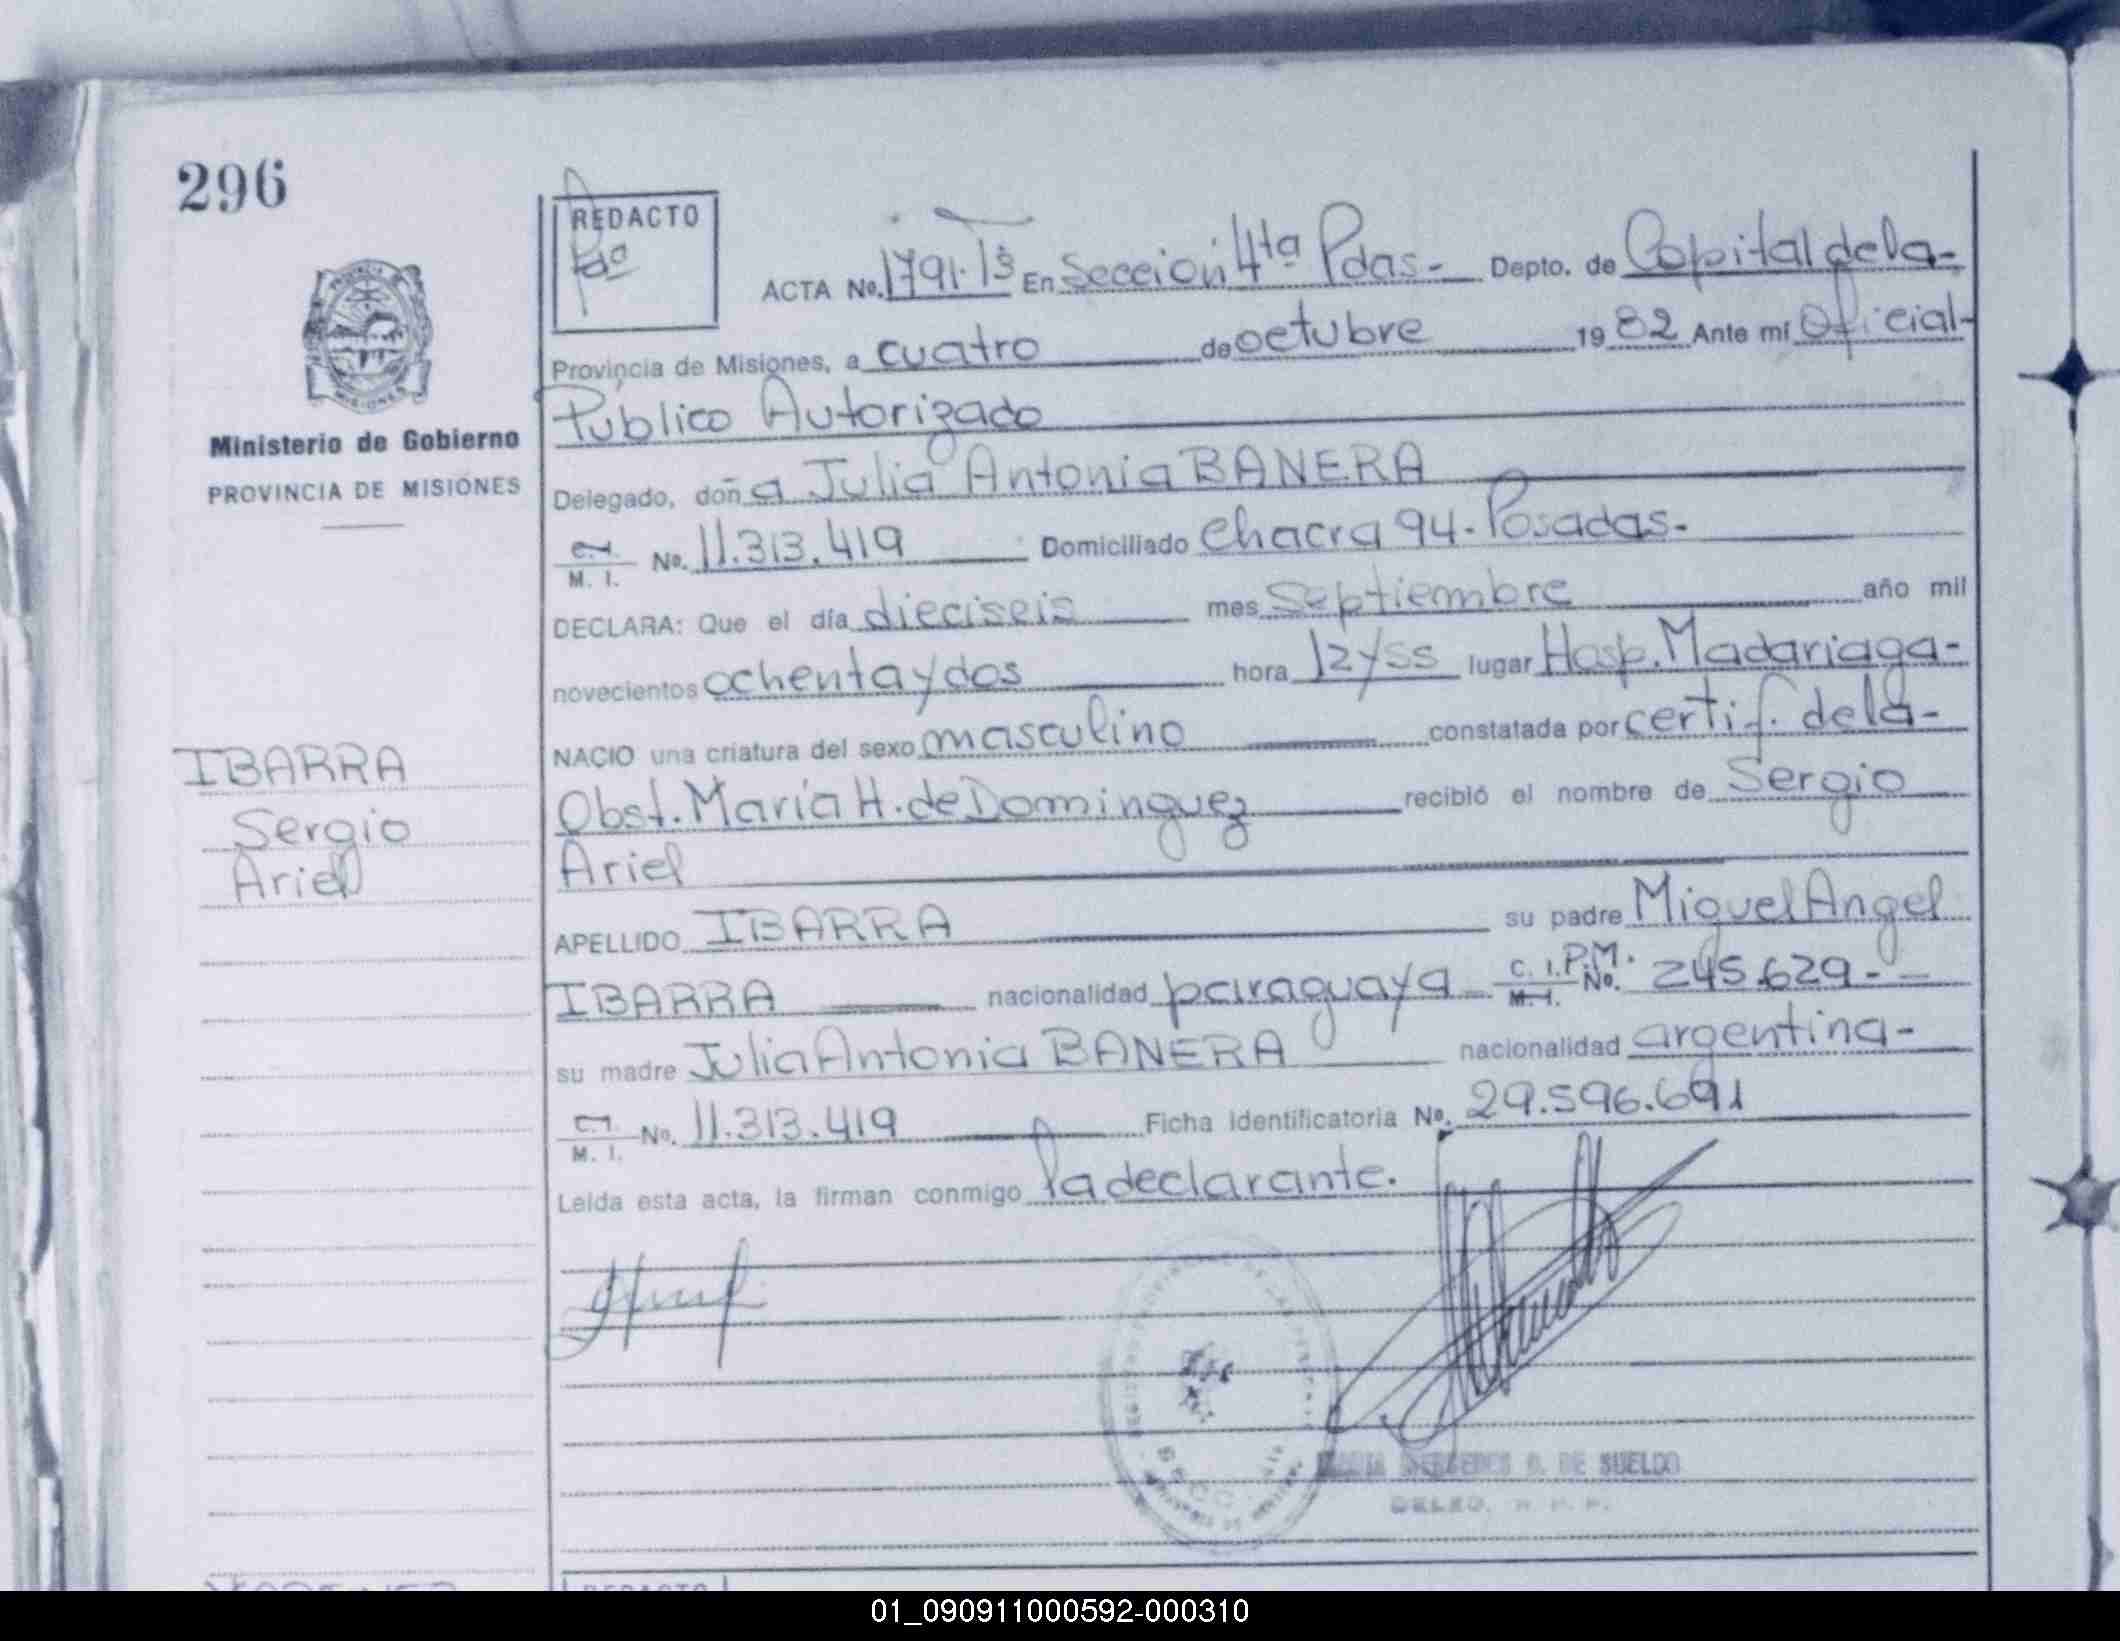 296
REDACTO
Ministerio de Gobierno
PROVINCIA DE MISIONES
IBARRA
Sergio
Ariel
ACTA No. 1791·Tº3 En Sección 4ta Pdas- Depto. de Capital de la-
Provincia de Misiones, a cuatro de octubre 1982 Ante mí Oficial-
Público Autorizado
Delegado, doña Julia Antonia BANERA
C.I. M. I. No. 11.313.419 Domiciliado Chacra 94-Posadas-
DECLARA: Que el día dieciseis mes septiembre año mil
novecientos ochenta y dos hora 12y55 lugar Hosp. Madariaga-
NACIO una criatura del sexo masculino constatada por certif. de la-
Obst. María H. de Dominguez recibió el nombre de Sergio
Ariel
APELLIDO IBARRA su padre Miguel Angel
IBARRA nacionalidad paraguaya C. I. P.M. M.I. No. 245.629-
su madre Julia Antonia BANERA nacionalidad argentina-
C.I. M. I. No. 11.313.419 Ficha Identificatoria No. 29.596.691
Leída esta acta, la firman conmigo la declarante.
DE SUELDO
01_090911000592-000310